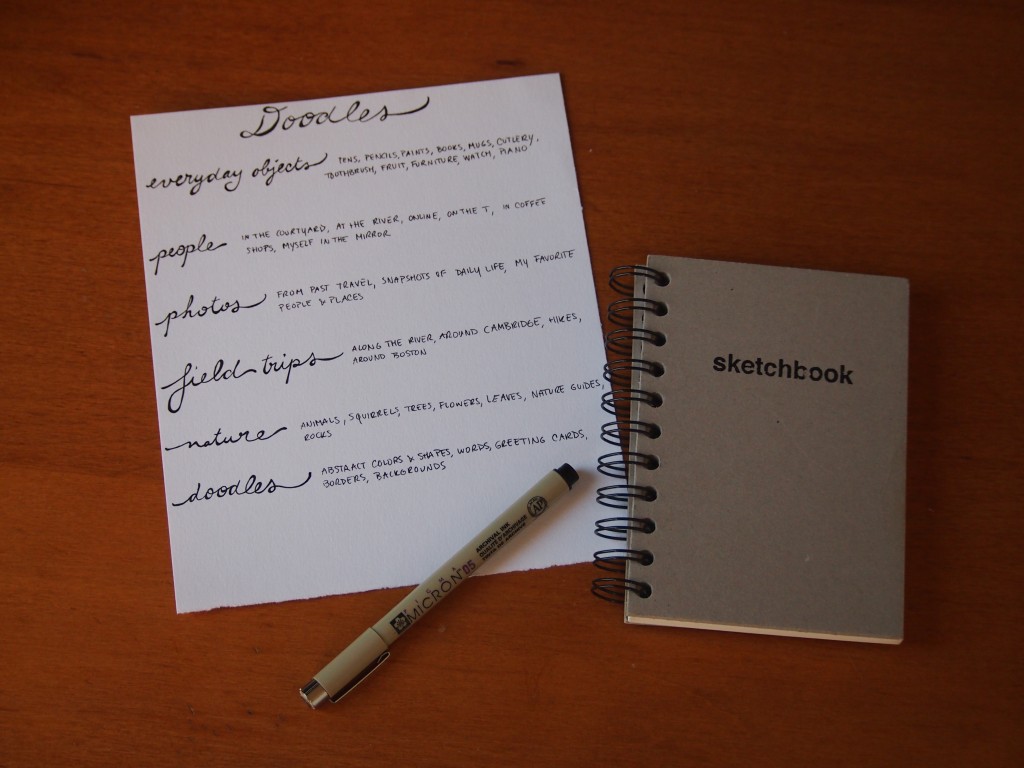 Doodles
everyday objects PENS, PENCILS, PAINTS, BOOKS, MUGS, CUTLERY,
TOOTHBRUSH, FRUIT, FURNITURE, WATCH, PIANO
people IN THE COURTYARD, AT THE RIVER, ONLINE, ON THE T, IN COFFEE
SHOPS, MYSELF IN THE MIRROR
photos FROM PAST TRAVEL, SNAPSHOTS OF DAILY LIFE, MY FAVORITE
PEOPLE & PLACES
field trips ALONG THE RIVER, AROUND CAMBRIDGE, HIKES,
AROUND BOSTON
nature ANIMALS, SQUIRRELS, TREES, FLOWERS, LEAVES, NATURE GUIDES,
ROCKS
doodles ABSTRACT COLORS & SHAPES, WORDS, GREETING CARDS,
BORDERS, BACKGROUNDS
sketchbook
MICRON 05
ARCHIVAL INK
AP